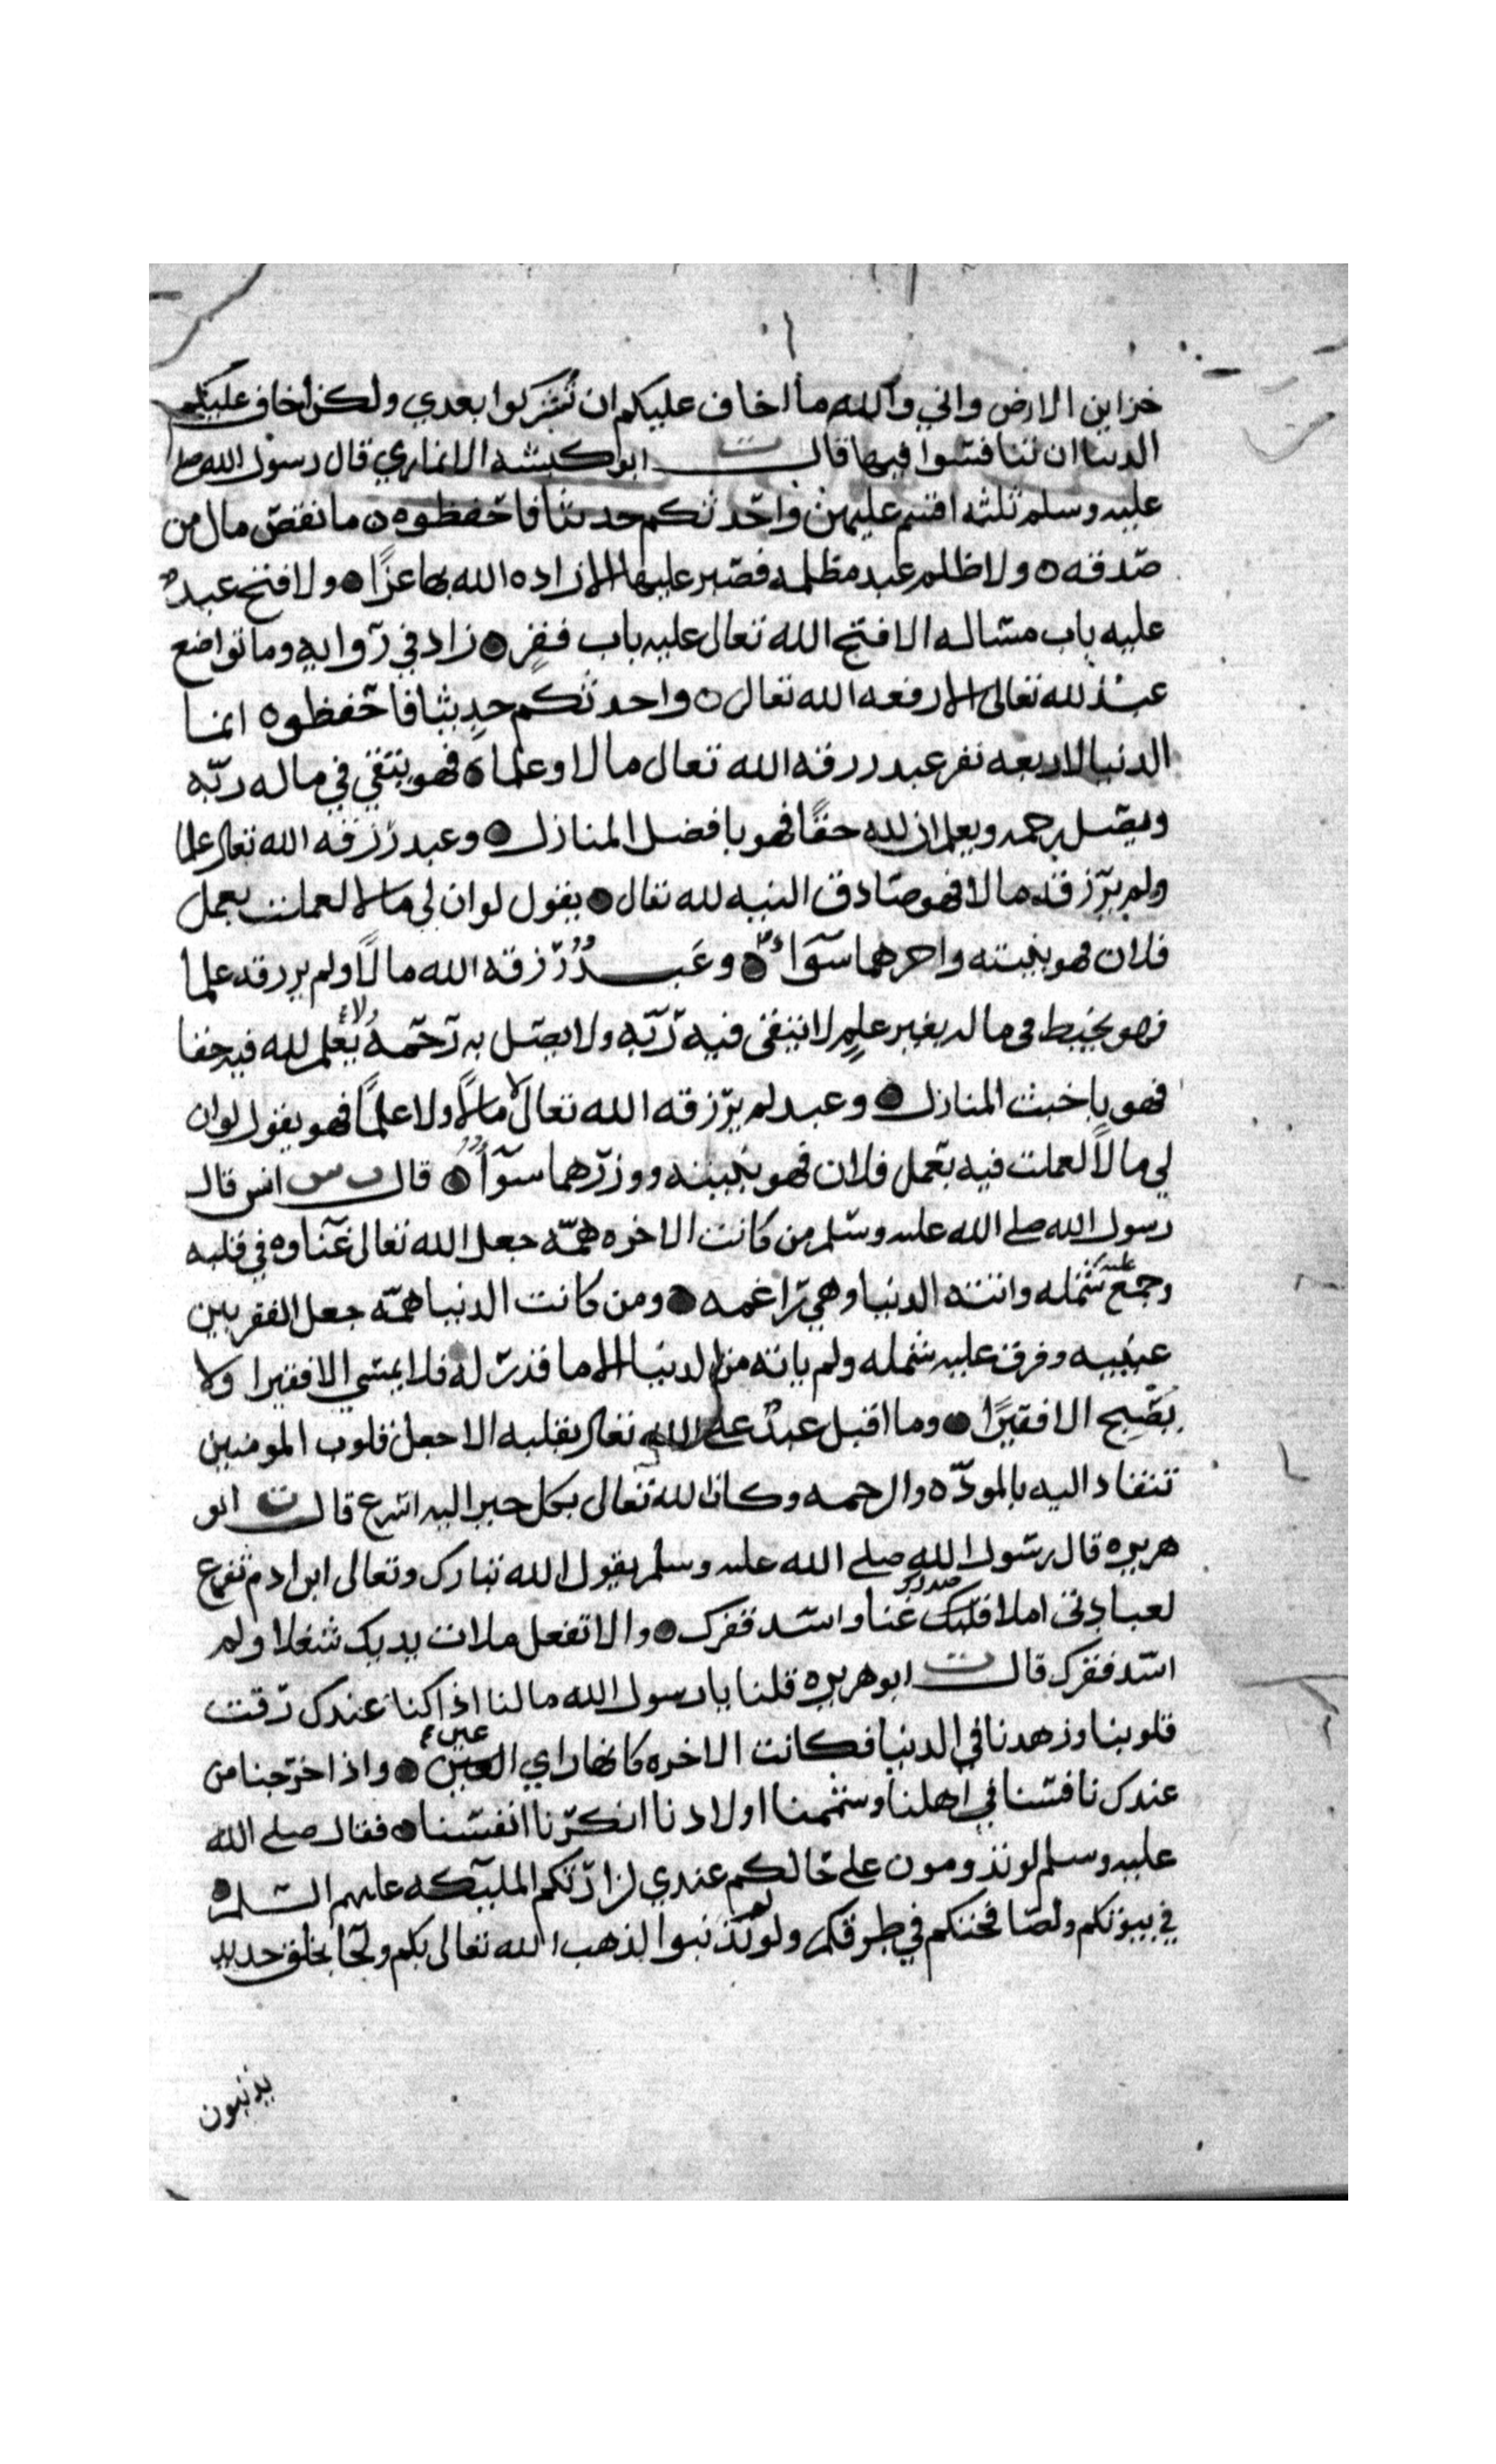 خزاين الارض واني والله ما اخاف عليكم ان تشركوا بعدي ولكن اخاف عليكم
الدنيا ان تنافسوا فيها قال ت ابو كبشه الانماري قال رسول الله صلى
عليه وسلم ثلثه اقسم عليهن واحدثكم حديثا فاحفظوه ما نقص مال من
صدقه ولا ظلم عبد مظلمه فصبر عليها الا زاده الله بها عزا ولا فتح عبد
عليه باب مساله الا فتح الله تعالى عليه باب فقر زاد في روايه وما تواضع
عبد لله تعالى الا رفعه الله تعالى واحدثكم حديثا فاحفظوه انما
الدنيا لاربعه نفر عبد رزقه الله تعالى مالا وعلما فهو يتقي في ماله ربه
ويصل رحمه ويعلم ان لله حقا فهو بافضل المنازل وعبد رزقه الله تعالى علما
ولم يرزقه مالا فهو صادق النيه لله تعالى يقول لو ان لي مالا لعملت بعمل
فلان فهو بنيته واجرهما سواء وعبد رزقه الله مالا ولم يرزقه علما
فهو يخبط في ماله بغير علم لا يتقي فيه ربه ولا يصل به رحمه ولا يعلم لله فيه حقا
فهو باخبث المنازل وعبد لم يرزقه الله تعالى مالا ولا علما فهو يقول لو ان
لي مالا لعملت فيه بعمل فلان فهو بنيته ووزرهما سواء قال ت س انس قال
رسول الله صلى الله عليه وسلم من كانت الاخره همه جعل الله تعالى غناوه في قلبه
وجمع عليه شمله واتته الدنيا وهي راغمه ومن كانت الدنيا همه جعل الفقر بين
عينيه وفرق عليه شمله ولم ياته من الدنيا الا ما قدر له فلا يمسي الا فقيرا ولا
يصبح الا فقيرا وما اقبل عبد على الله تعالى بقلبه الا جعل قلوب المومنين
تنقاد اليه بالموده والرحمه وكان الله تعالى بكل خير اليه اسرع قال ت ابو
هريره قال رسول الله صلى الله عليه وسلم يقول الله تبارك وتعالى ابن ادم تفرع
لعبادتي املا قلبك صدرك غنا واسد فقرك والا تفعل ملات يديك شغلا ولم
اسد فقرك قال ت ابو هريره قلنا يا رسول الله ما لنا اذا كنا عندك رقت
قلوبنا وزهدنا في الدنيا فكانت الاخره كانها راي العين عين واذا خرجنا من
عندك نافسنا في اهلنا وشممنا اولادنا انكرنا انفسنا فقال صلى الله
عليه وسلم لو تدومون على حالكم عندي لزارتكم المليكه عليهم السلم
في بيوتكم ولصافحتكم في طرقكم ولو لم تذنبوا لذهب الله تعالى بكم ولجا بخلق جديد
يذنبون